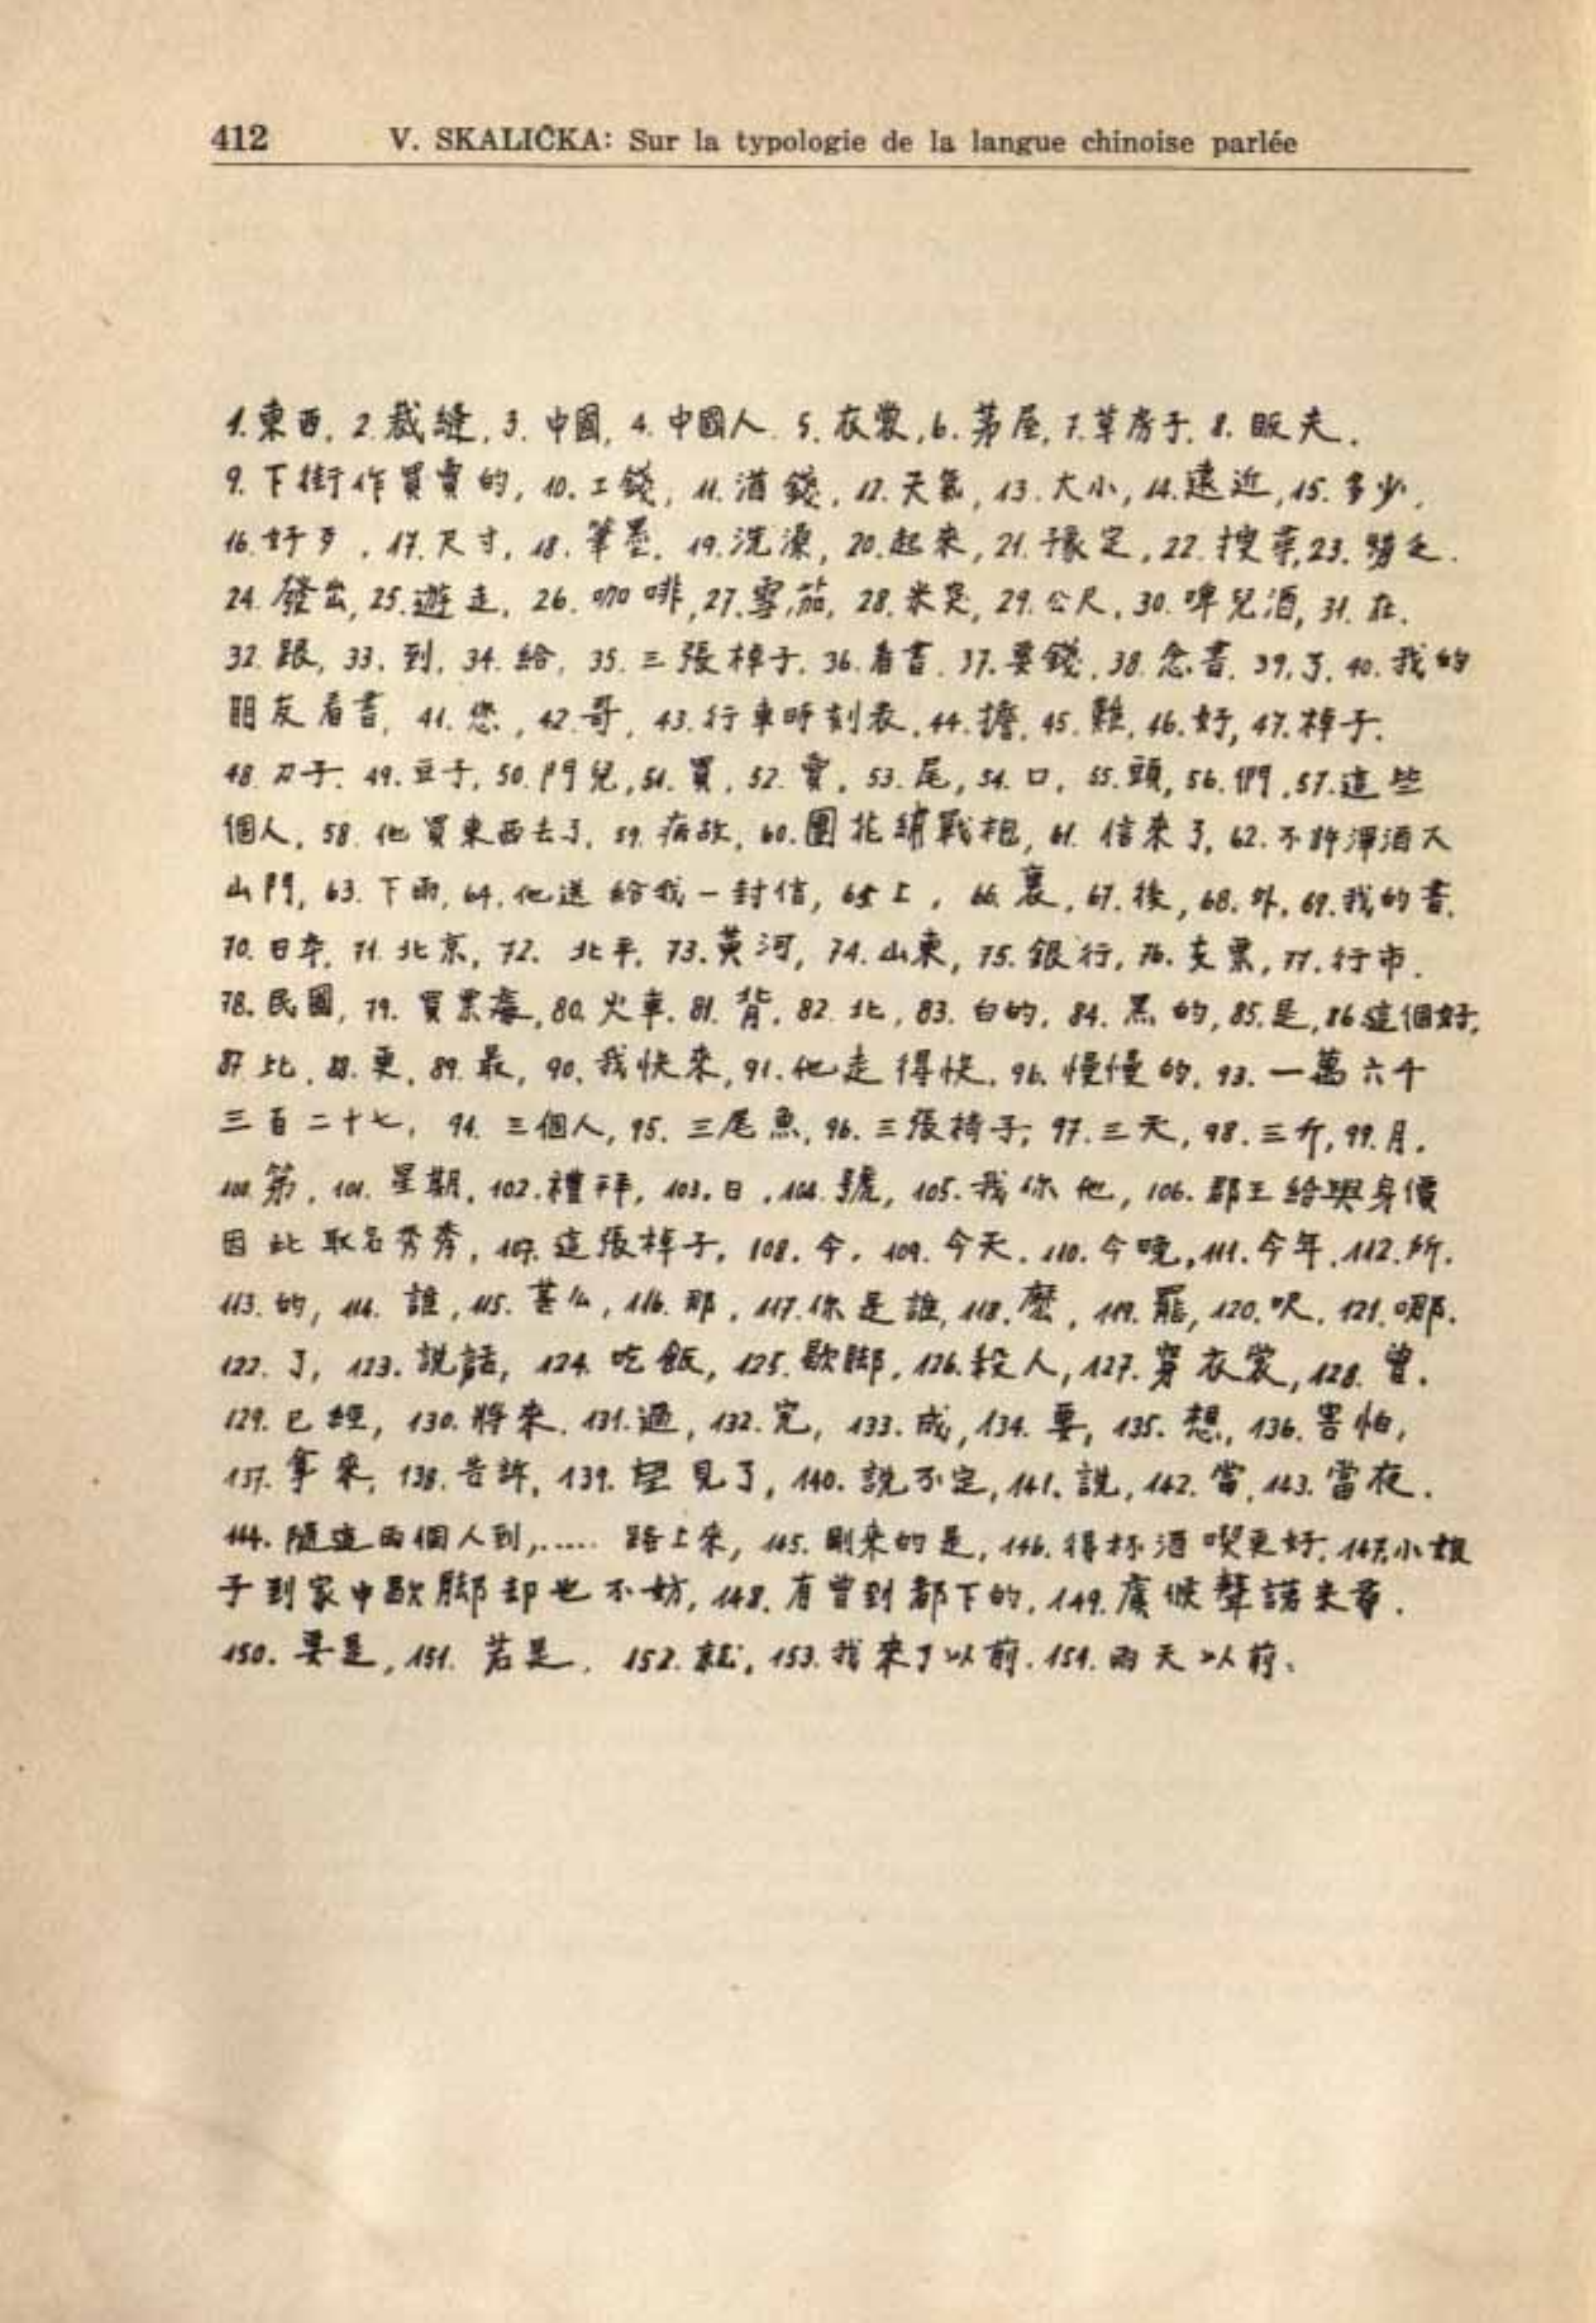 412 V. SKALIČKA: Sur la typologie de la langue chinoise parlée
1. 東西, 2. 裁縫, 3. 中國, 4. 中國人. 5. 衣裳, 6. 茅屋, 7. 草房子. 8. 販夫.
9. 下街作買賣的, 10. 工錢, 11. 酒錢, 12. 天氣, 13. 大小, 14. 遠近, 15. 多少,
16. 好歹, 17. 尺寸, 18. 筆墨. 19. 洗澡, 20. 起來, 21. 豫定, 22. 搜 23.
24. 發出, 25. 遊走, 26. 咖啡, 27. 雪茄, 28. 米突, 29. 公尺, 30. 啤兒酒, 31. 在.
32. 跟, 33. 到, 34. 給, 35. 三張棹子. 36. 看書. 37. 要錢, 38. 念書. 39. 了. 40. 我的
朋友看書, 41. 您, 42. 哥, 43. 行車時刻表, 44. 擔, 45. 難, 46. 好, 47. 棹子.
48. 刀子. 49. 豆子, 50. 門兒, 51. 買, 52. 賣, 53. 尾, 54. 口, 55. 頭, 56. 們, 57. 這些
個人, 58. 他買東西去了, 59. 病故, 60. 團花繡戰袍, 61. 信來了, 62. 不許渾酒入
山門, 63. 下雨, 64. 他送給我一封信, 65. 上, 66. 裏, 67. 後, 68. 外, 69. 我的書.
70. 日本, 71. 北京, 72. 北平, 73. 黃河, 74. 山東, 75. 銀行, 76. 支票, 77. 行市.
78. 民國, 79. 買票處, 80. 火車. 81. 背, 82. 北, 83. 白的, 84. 黑的, 85. 是, 86. 這個好,
87. 比, 88. 更, 89. 最, 90. 我快來, 91. 他走得快. 96. 慢慢的, 93. 一萬六千
三百二十七, 94. 三個人, 95. 三尾魚, 96. 三張椅子, 97. 三天, 98. 三斤, 99. 月.
100. 第, 101. 星期, 102. 禮拜, 103. 日, 104. 號, 105. 我你他, 106. 郡王給與身價
因此取名秀秀, 107. 這張棹子, 108. 今, 109. 今天. 110. 今晚, 111. 今年, 112. 所.
113. 的, 114. 誰, 115. 甚么, 116. 那, 117. 你是誰, 118. 麼, 119. 罷, 120. 呎, 121. 哪.
122. 了, 123. 說話, 124. 吃飯, 125. 歇脚, 126. 殺人, 127. 穿衣裳, 128. 曾.
129. 已經, 130. 將來. 131. 過, 132. 完, 133. 成, 134. 要, 135. 想, 136. 害怕,
137. 拿來, 138. 告訴, 139. 望見了, 140. 說不定, 141. 說, 142. 當, 143. 當夜.
144. 隨這兩個人到,..... 路上來, 145. 剛来的是, 146. 得杯酒喫更好, 147. 小娘
子到家中歇脚却也不妨, 148. 有曾到都下的, 149. 虞候聲諾来尋.
150. 要是, 151. 若是. 152. 就, 153. 我來了以前. 154. 兩天以前.